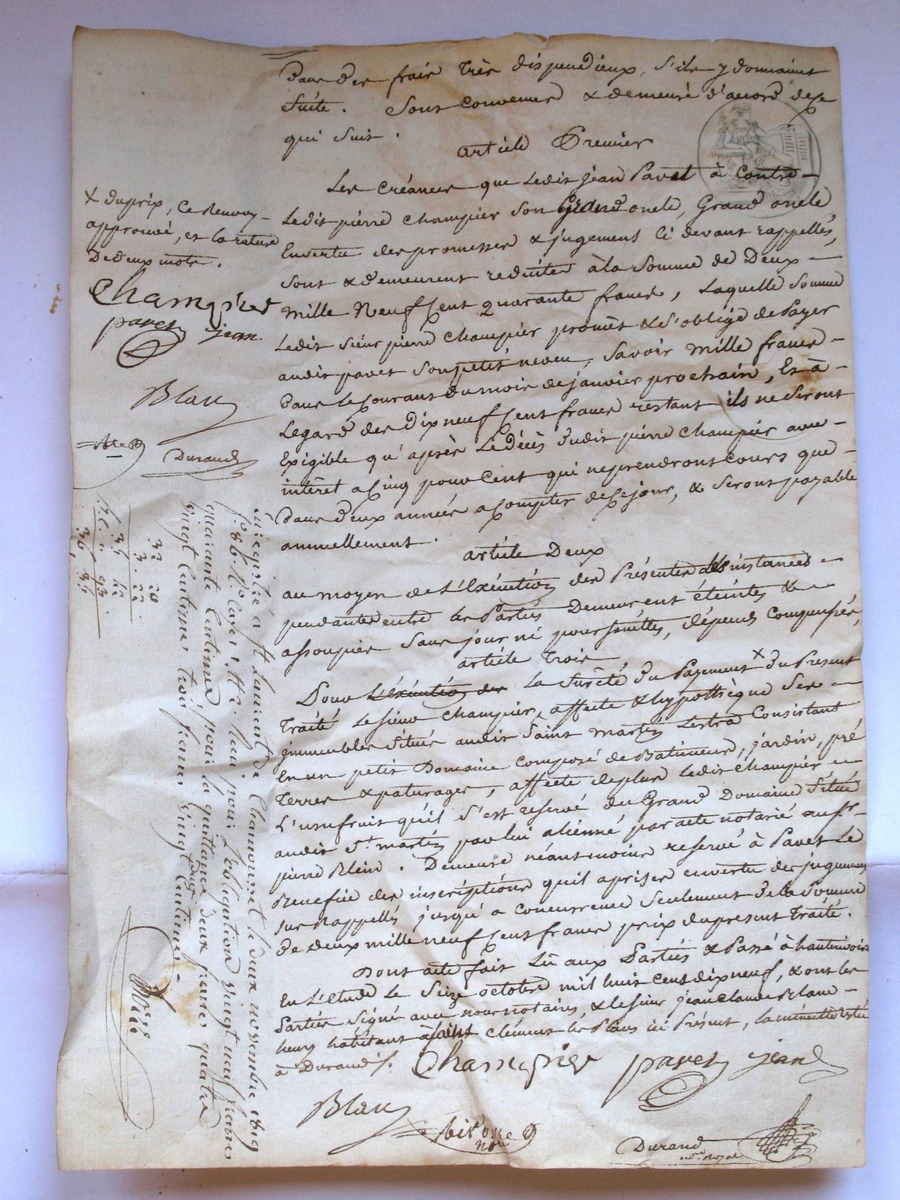 Dans des frais très dispendieux, s'ils y donnaint
suite. Sont convenus & demeuré d'accord de ce
qui suit.
article Premier
Les créances que ledit jean Pavet à contre
ledit pierre Champier son grand oncle, Grand oncle
En vertu des promesses & jugement ci devant rappellés,
sont & demeurent reduites à la somme de Deux
mille Neuf Cent quarante francs, laquelle somme
ledit sieur pierre Champier promet & s'oblige de Payer
audit pavet son petit neveu, Savoir mille francs
Dans le Courant du mois de janvier prochain, Et à
Legard des Dix neuf Cent francs restant ils ne seront
Exigible qu'après le Décès dudit pierre Champier avec
intérêt a Cinq pour Cent qui ne prendront cours que
Dans Deux années a compter de ce jour, & seront payable
annuellement.
article Deux
au moyen de l'Exécution des Présentes les instances
pendantes entre les Parties Demeurent éteintes &
assoupies sans jour ni poursuittes, dépends compensés,
article Trois
Pour L'éxécution des la sureté du Payement x du Present
Traité le sieur Champier, affecte & hypothèque ses
immeubles situés audit Saint martin Lestra Consistant
En un petit Domaine composé de Batimens, jardin, pré
Terres & paturages, affecte de plus ledit Champier
L'usufruit qu'il s'est réservé du Grand Domaine situé
audit St. martin par lui alienné par acte notarié au sr.
pierre Blein. Demeure néantmoins reservé à Pavet le
Benefice des inscriptions qu'il a prises en vertu des jugements
sus Rappellés jusqu'a concurrence seulement de la somme
de deux mille neuf Cent francs prix du present Traité.
Dont acte fait Lu aux Parties & Passé à hauterivoire
En L'étude le Seize octobre mil huit Cent dix neuf, & ont les
Parties signé avec nous notaires, & le sieur jean Claude Blanc
habitant à saint Clément les Places ici Présent, la minutte restée
à Durand.
Champier pavet jean
Blanc
Durand
nore. Royal
x du prix, Ce renvoy
approuvé, et la rature
De deux mots.
Champier
pavet jean
Blanc
Durand
Enregistré à St. Laurent de Chamousset le deux novembre 1819
quarante Centimes, pour la quittance deux francs quatre
vingt Centimes